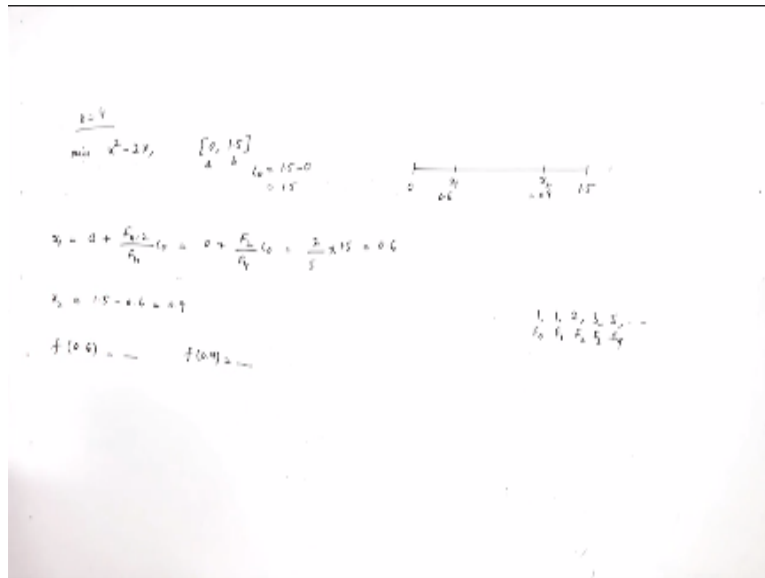 n=4
min x²-2x, [0, 1.5]
a b
L₀ = 1.5-0
= 1.5
0 x₁ x₂ 1.5
0.6 =0.9
x₁ = a + Fₙ₋₂/Fₙ L₀ = 0 + F₂/F₄ L₀ = 2/5 x 1.5 = 0.6
x₂ = 1.5 - 0.6 = 0.9
1, 1, 2, 3, 5, ...
F₀ F₁ F₂ F₃ F₄
f(0.6) = — f(0.9) = —